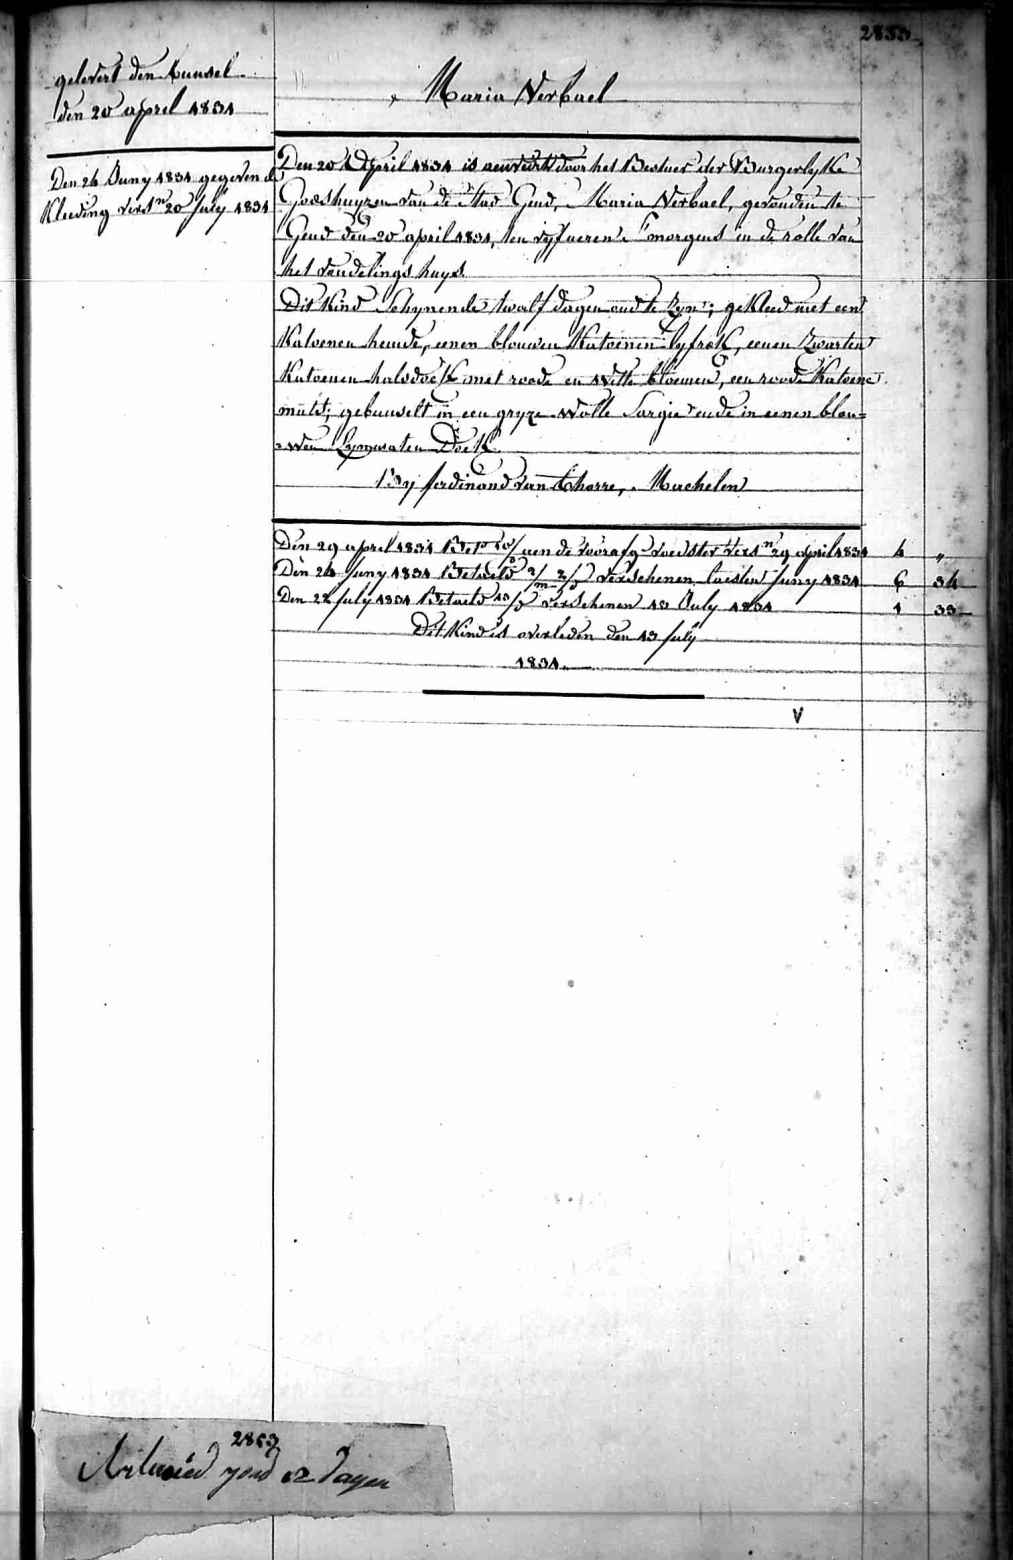 2853
gelevert den bunsel
den 20 april 1831
Maria Verbael
Den 26 Juny 1831 gegeven de
Kleeding vers.n 20 July 1831
Den 20 April 1831 is aenveirt door het Bestuer der Burgerlyke
Godshuyzen van de Stad Gend, Maria Verbael, gevonden te
Gend den 20 april 1831, ten vyf ueren 's morgens in de rolle van
het vondelings huys.
Dit Kind Schynende twalf dagen oud te zyn; gekleed met een
Katoenen hemde, eenen blouwen Katoenen lyfrok, eenen zwarten
Katoenen halsdoek met roode en witte bloemen, een roode Katoene
muts; gebunselt in een gryze wolle Sargie ende in eenen blou=
=wen Lynwaten Doek.
By ferdinand van, Machelen
Den 29 april 1831 Bet.d 10/ aen de voorafg. voedster vers.n 29 april 1831 4 "
Den 24 Juny 1831 Betaeld 2/m 2/ verschenen laesten Juny 1831 6 34
Den 22 July 1831 Betaeld 13/ verschenen 13 July 1831 1 33
Dit Kind is overleden den 13 July
1831.
V
2853
oud 12 dagen